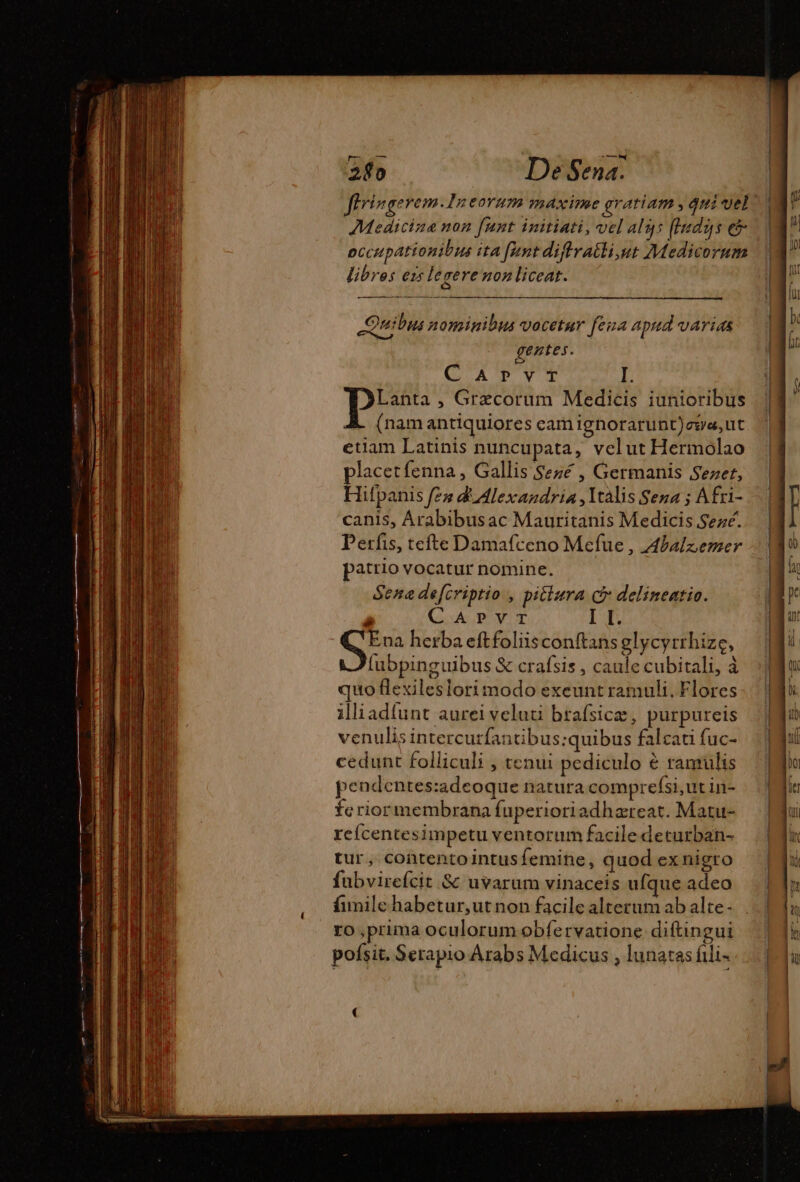 280 De Sena.
ſtringerem. In eorum maxime gratiam, qui vel
Medicinæ non ſunt initiati, vel alijs ſtudijs &
occupationibus ita ſunt diſtracti, ut Medicorum
libros eis legere non liceat.
Quibus nominibus vocetur ſena apud varias
gentes.
CAPVT I.
PLanta, Græcorum Medicis iunioribus
(nam antiquiores eam ignorarunt) σένα, ut
etiam Latinis nuncupata, vel ut Hermolao
placet ſenna, Gallis Sené, Germanis Senet,
Hiſpanis ſen d'Alexandria, Italis Sena; Afri-
canis, Arabibus ac Mauritanis Medicis Sené.
Perſis, teſte Damaſceno Meſue, Abalzemer
patrio vocatur nomine.
Senæ deſcriptio, pictura & delineatio.
CAPVT II.
SEna herba eſt foliis conſtans glycyrrhizę,
ſubpinguibus & craſsis, caule cubitali, à
quo flexiles lori modo exeunt ramuli. Flores
illi adſunt aurei veluti braſsicæ, purpureis
venulis intercurſantibus: quibus falcati ſuc-
cedunt folliculi, tenui pediculo è ramulis
pendentes: adeoque natura compreſsi, ut in-
ferior membrana ſuperiori adhæreat. Matu-
reſcentes impetu ventorum facile deturban-
tur, contento intus ſemine, quod ex nigro
ſubvireſcit & uvarum vinaceis uſque adeo
ſimile habetur, ut non facile alterum ab alte-
ro, prima oculorum obſervatione diſtingui
poſsit. Serapio Arabs Medicus, lunatas ſili-